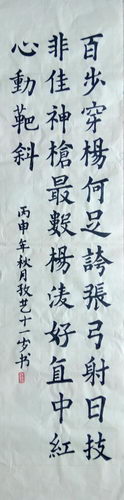 百步穿楊何足誇張弓射日技
非佳神槍最數楊淩好直中紅
心動靶斜
丙申年秋月孜艺十一岁书